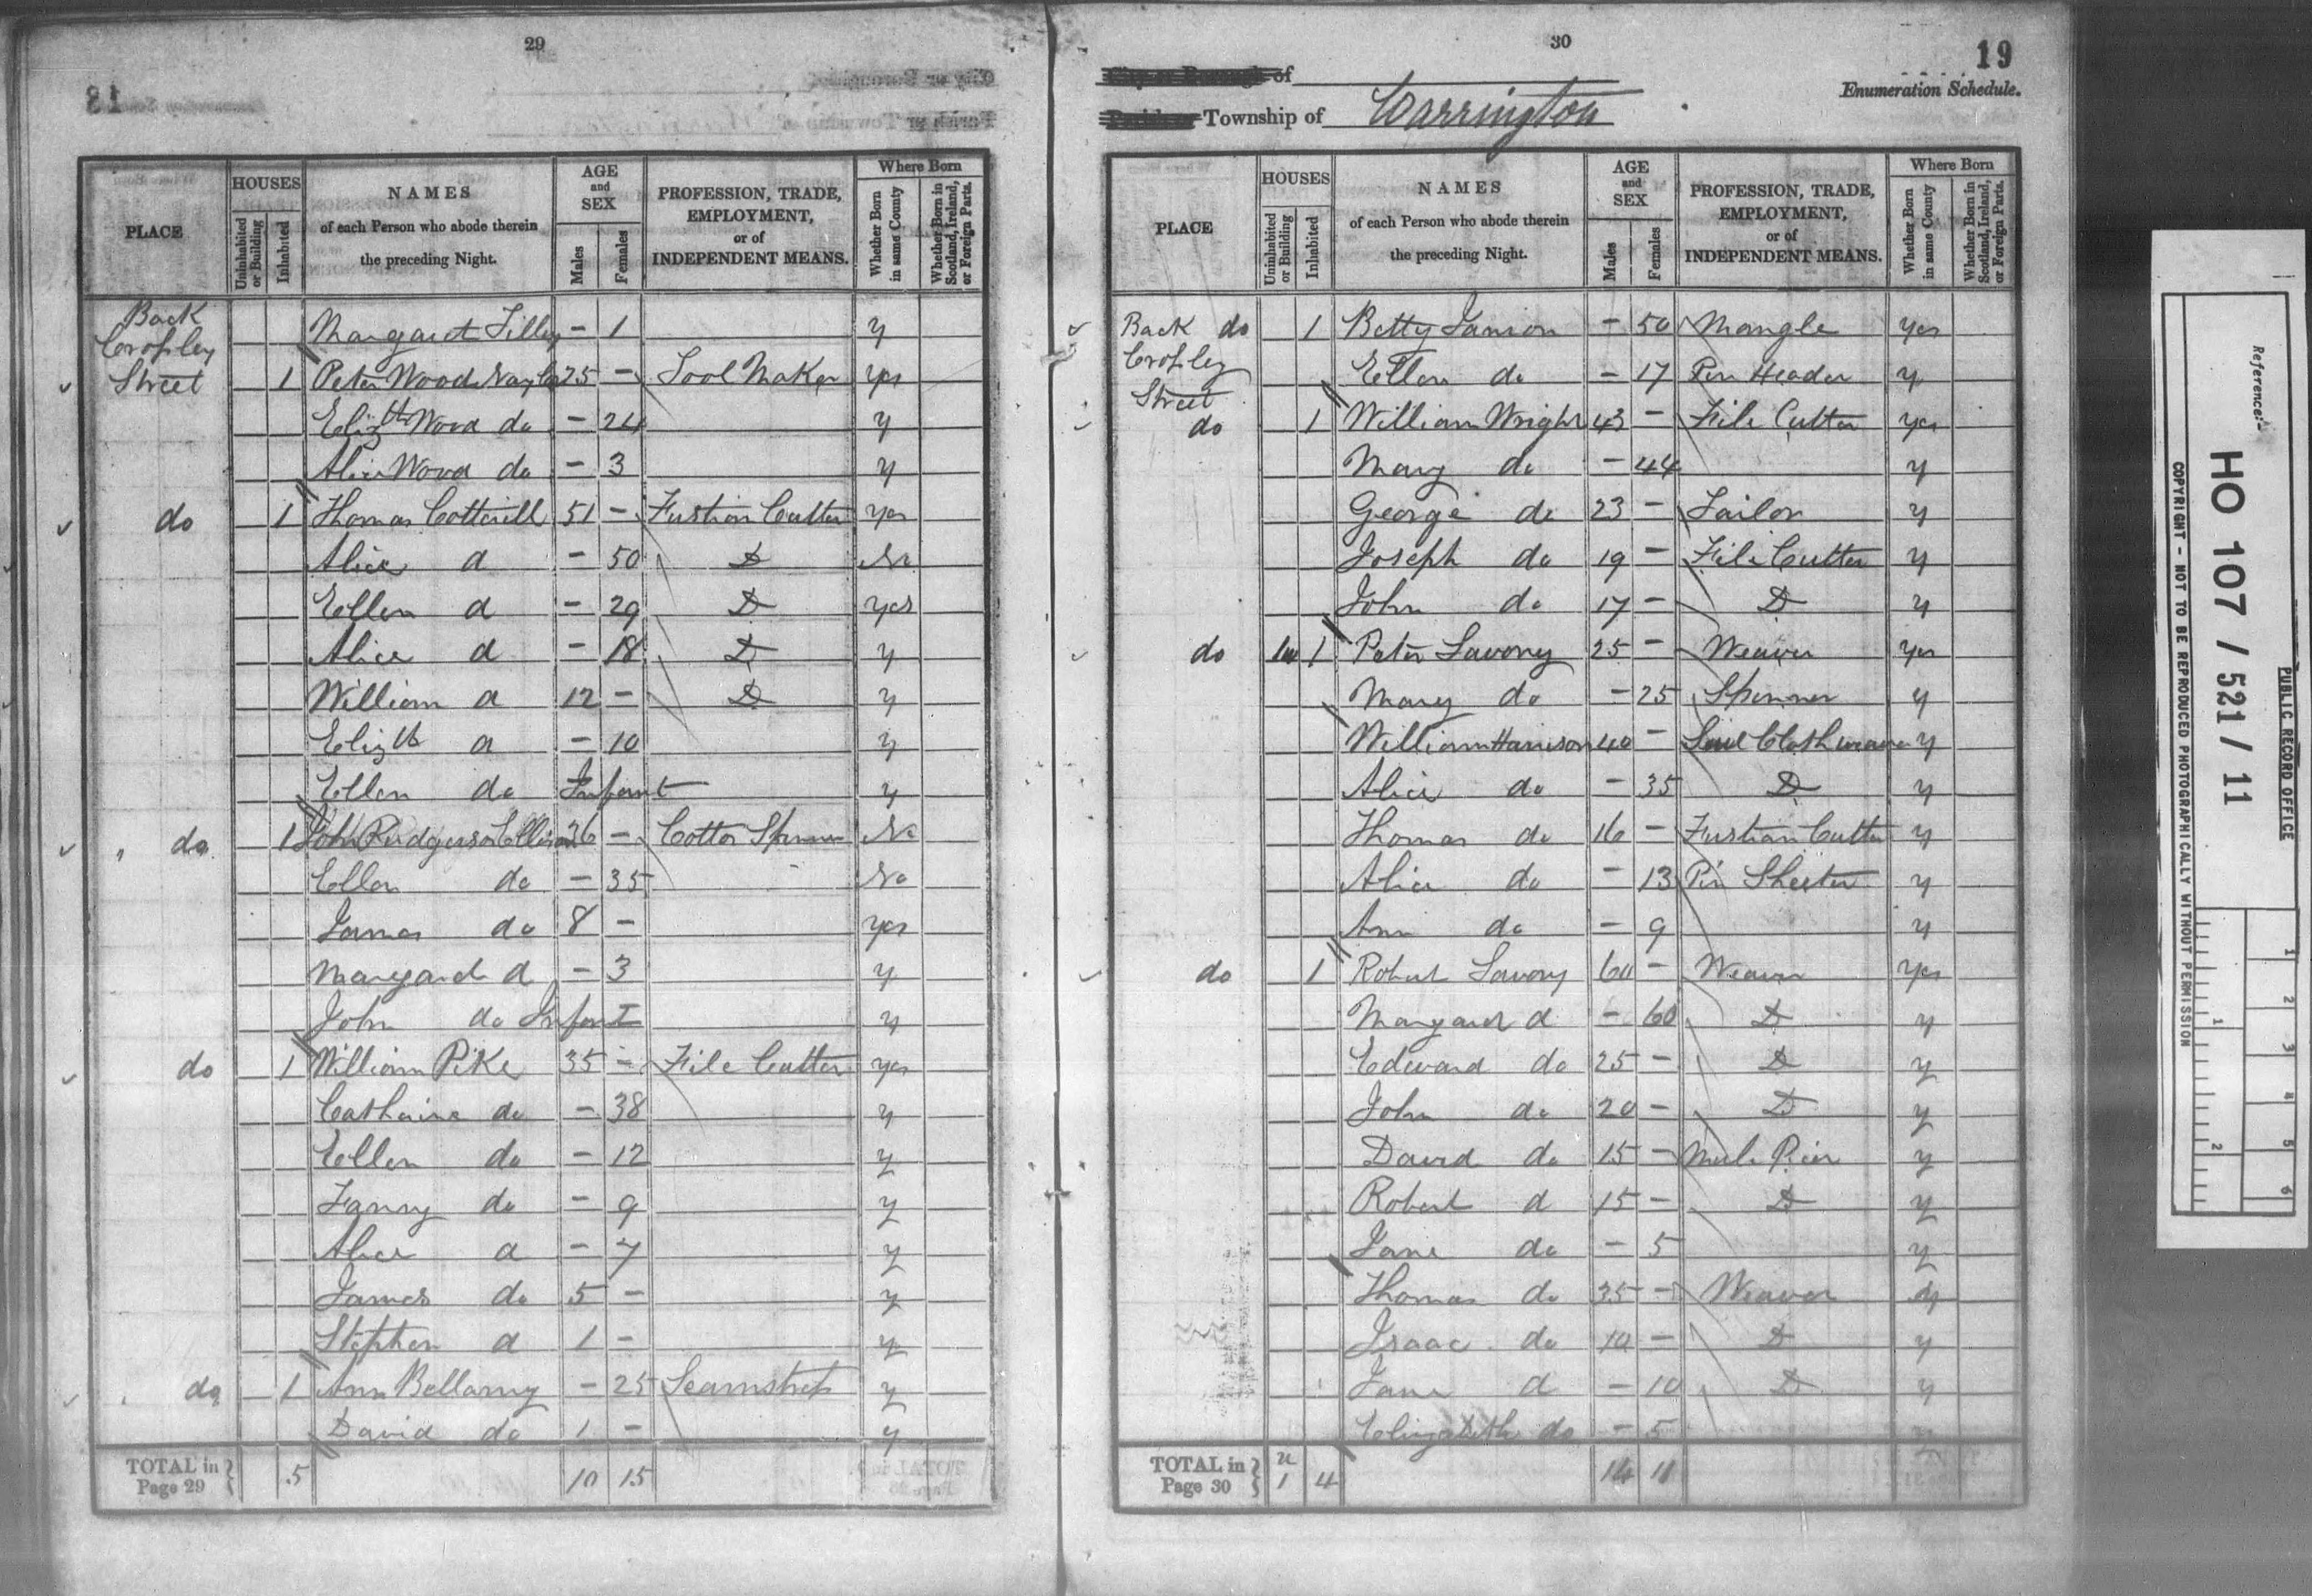 29
PLACE
HOUSES
Uninhabited or Building
Inhabited
NAMES
of each Person who abode therein
the preceding Night.
AGE
and
SEX
Males
Females
PROFESSION, TRADE,
EMPLOYMENT,
or of
INDEPENDENT MEANS.
Where Born
Whether Born in same County
Whether Born in Scotland, Ireland, or Foreign Parts.
Back Cropley Street
Margaret Tilley - 1 y
1 Peter Wood Naylor 25 - Tool Maker yes
Elizth Wood do - 24 y
Alice Wood do - 3 y
do 1 Thomas Cotterill 51 - Fustian Cutter yes
Alice d - 50 D No
Ellen d - 29 D yes
Alice d - 18 D y
William d 12 - D y
Elizth d - 10 y
Ellen do Infant y
do 1 John Rudgerson Ellison 36 - Cotton Spinner No
Ellen do - 35 No
James do 8 - yes
Margaret d - 3 y
John do Infant y
do 1 William Pike 35 - File Cutter yes
Catharine do - 38 y
Ellen do - 12 y
Fanny do - 9 y
Alice d - 7 y
James do 5 - y
Stephen d 1 - y
do 1 Ann Bellamy - 25 Seamstress y
David do 1 - y
TOTAL in Page 29 5 10 15
30
19
Enumeration Schedule.
City or Borough of
Township of Warrington
PLACE
HOUSES
Uninhabited or Building
Inhabited
NAMES
of each Person who abode therein
the preceding Night.
AGE
and
SEX
Males
Females
PROFESSION, TRADE,
EMPLOYMENT,
or of
INDEPENDENT MEANS.
Where Born
Whether Born in same County
Whether Born in Scotland, Ireland, or Foreign Parts.
Back do Cropley Street
1 Betty Janson - 50 Mangle yes
Ellen do - 17 Pin Header y
do 1 William Wright 43 - File Cutter yes
Mary do - 44 y
George do 23 - Tailor y
Joseph do 19 - File Cutter y
John do 17 - D y
do 1u 1 Peter Savory 25 - Weaver yes
Mary do - 25 Spinner y
William Harrison 40 - Sail Cloth weaver y
Alice do - 35 D y
Thomas do 16 - Fustian Cutter y
Alice do - 13 Pin Sheeter y
Ann do - 9 y
do 1 Robert Savory 60 - Weaver yes
Margaret d - 60 D y
Edward do 25 - D y
John do 20 - D y
David do 15 - y
Robert d 15 - D y
Jane do - 5 y
Thomas do 35 - Weaver y
Isaac do 10 - D y
Jane d - 10 D y
Elizabeth do - 5 y
TOTAL in Page 30 u 1 4 14 11
Reference:-
HO 107 / 521 / 11
PUBLIC RECORD OFFICE
COPYRIGHT - NOT TO BE REPRODUCED PHOTOGRAPHICALLY WITHOUT PERMISSION
1 2 3 4 5 6
1 2